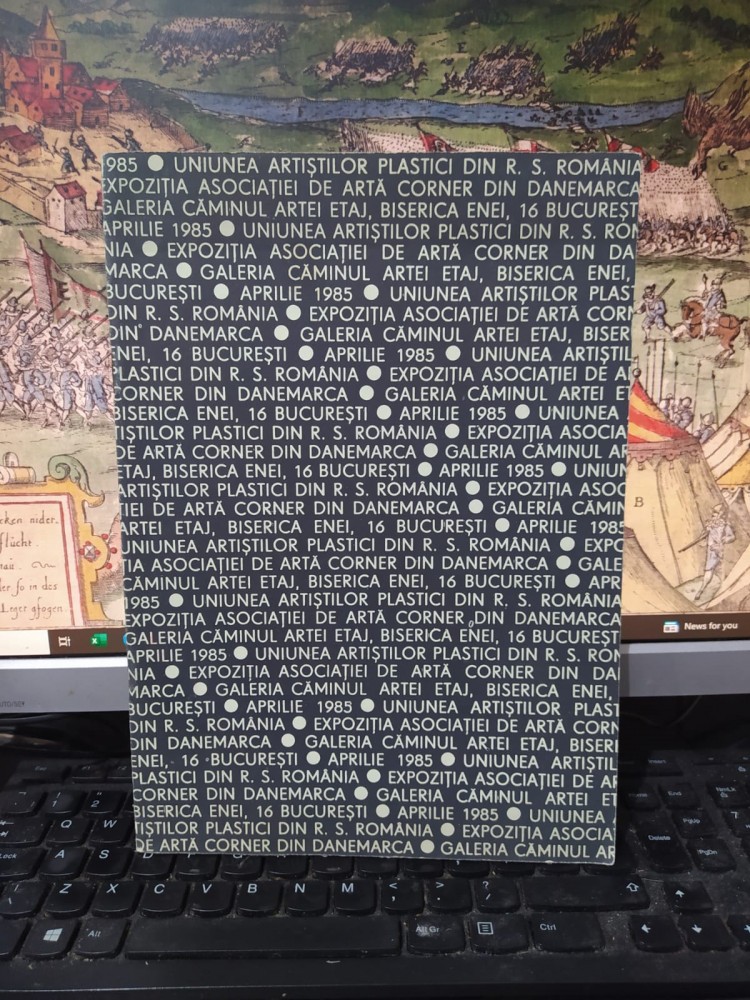 985 ● UNIUNEA ARTIȘTILOR PLASTICI DIN R. S. ROMÂNIA
EXPOZIȚIA ASOCIAȚIEI DE ARTĂ CORNER DIN DANEMARCA
GALERIA CĂMINUL ARTEI ETAJ, BISERICA ENEI, 16 BUCUREȘT
APRILIE 1985 ● UNIUNEA ARTIȘTILOR PLASTICI DIN R. S. ROM
NIA ● EXPOZIȚIA ASOCIAȚIEI DE ARTĂ CORNER DIN DA
MARCA ● GALERIA CĂMINUL ARTEI ETAJ, BISERICA ENEI,
BUCUREȘTI ● APRILIE 1985 ● UNIUNEA ARTIȘTILOR PLAS
DIN R. S. ROMÂNIA ● EXPOZIȚIA ASOCIAȚIEI DE ARTĂ CORN
DIN DANEMARCA ● GALERIA CĂMINUL ARTEI ETAJ, BISER
ENEI, 16 BUCUREȘTI ● APRILIE 1985 ● UNIUNEA ARTIȘTIL
PLASTICI DIN R. S. ROMÂNIA ● EXPOZIȚIA ASOCIAȚIEI DE A
CORNER DIN DANEMARCA ● GALERIA CĂMINUL ARTEI E
BISERICA ENEI, 16 BUCUREȘTI ● APRILIE 1985 ● UNIUNEA
IȘTILOR PLASTICI DIN R. S. ROMÂNIA ● EXPOZIȚIA ASOCIA
DE ARTĂ CORNER DIN DANEMARCA ● GALERIA CĂMINUL AR
ETAJ, BISERICA ENEI, 16 BUCUREȘTI ● APRILIE 1985 ● UNIUN
ARTIȘTILOR PLASTICI DIN R. S. ROMÂNIA ● EXPOZIȚIA ASOC
IEI DE ARTĂ CORNER DIN DANEMARCA ● GALERIA CĂMIN
ARTEI ETAJ, BISERICA ENEI, 16 BUCUREȘTI ● APRILIE 1985
UNIUNEA ARTIȘTILOR PLASTICI DIN R. S. ROMÂNIA ● EXPO
ȚIA ASOCIAȚIEI DE ARTĂ CORNER DIN DANEMARCA ● GALE
CĂMINUL ARTEI ETAJ, BISERICA ENEI, 16 BUCUREȘTI ● APR
1985 ● UNIUNEA ARTIȘTILOR PLASTICI DIN R. S. ROMÂNIA
EXPOZIȚIA ASOCIAȚIEI DE ARTĂ CORNER DIN DANEMARCA
GALERIA CĂMINUL ARTEI ETAJ, BISERICA ENEI, 16 BUCUREȘT
APRILIE 1985 ● UNIUNEA ARTIȘTILOR PLASTICI DIN R. S. ROM
NIA ● EXPOZIȚIA ASOCIAȚIEI DE ARTĂ CORNER DIN DA
MARCA ● GALERIA CĂMINUL ARTEI ETAJ, BISERICA ENEI,
BUCUREȘTI ● APRILIE 1985 ● UNIUNEA ARTIȘTILOR PLAST
DIN R. S. ROMÂNIA ● EXPOZIȚIA ASOCIAȚIEI DE ARTĂ CORN
DIN DANEMARCA ● GALERIA CĂMINUL ARTEI ETAJ, BISERI
ENEI, 16 BUCUREȘTI ● APRILIE 1985 ● UNIUNEA ARTIȘTIL
PLASTICI DIN R. S. ROMÂNIA ● EXPOZIȚIA ASOCIAȚIEI DE AR
CORNER DIN DANEMARCA ● GALERIA CĂMINUL ARTEI ET
BISERICA ENEI, 16 BUCUREȘTI ● APRILIE 1985 ● UNIUNEA
TIȘTILOR PLASTICI DIN R. S. ROMÂNIA ● EXPOZIȚIA ASOCIA
DE ARTĂ CORNER DIN DANEMARCA ● GALERIA CĂMINUL AR
B
News for you
Insert
Home
End
PgUp
Delete
PgDn
1 2
Q W
Lock A S
Z X C V B N M < , > . ? /
Alt
Alt Gr
Ctrl